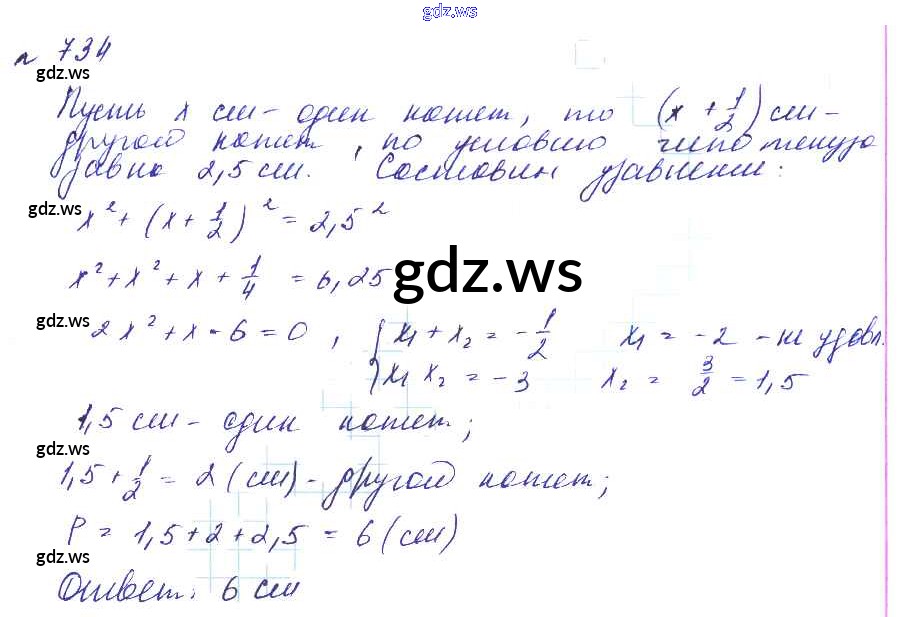 gdz.ws
№ 734
gdz.ws
Пусть x см - один катет, то (x + 1/2) см -
другой катет, по условию гипотенуза
равна 2,5 см. Составим уравнение:
gdz.ws
x² + (x + 1/2)² = 2,5²
gdz.ws
x² + x² + x + 1/4 = 6,25
gdz.ws
2x² + x - 6 = 0, { x₁ + x₂ = -1/2 x₁ = -2 - не удовл.
x₁ x₂ = -3 x₂ = 3/2 = 1,5
1,5 см - один катет;
gdz.ws
1,5 + 1/2 = 2 (см) - другой катет;
P = 1,5 + 2 + 2,5 = 6 (см)
gdz.ws
Ответ: 6 см